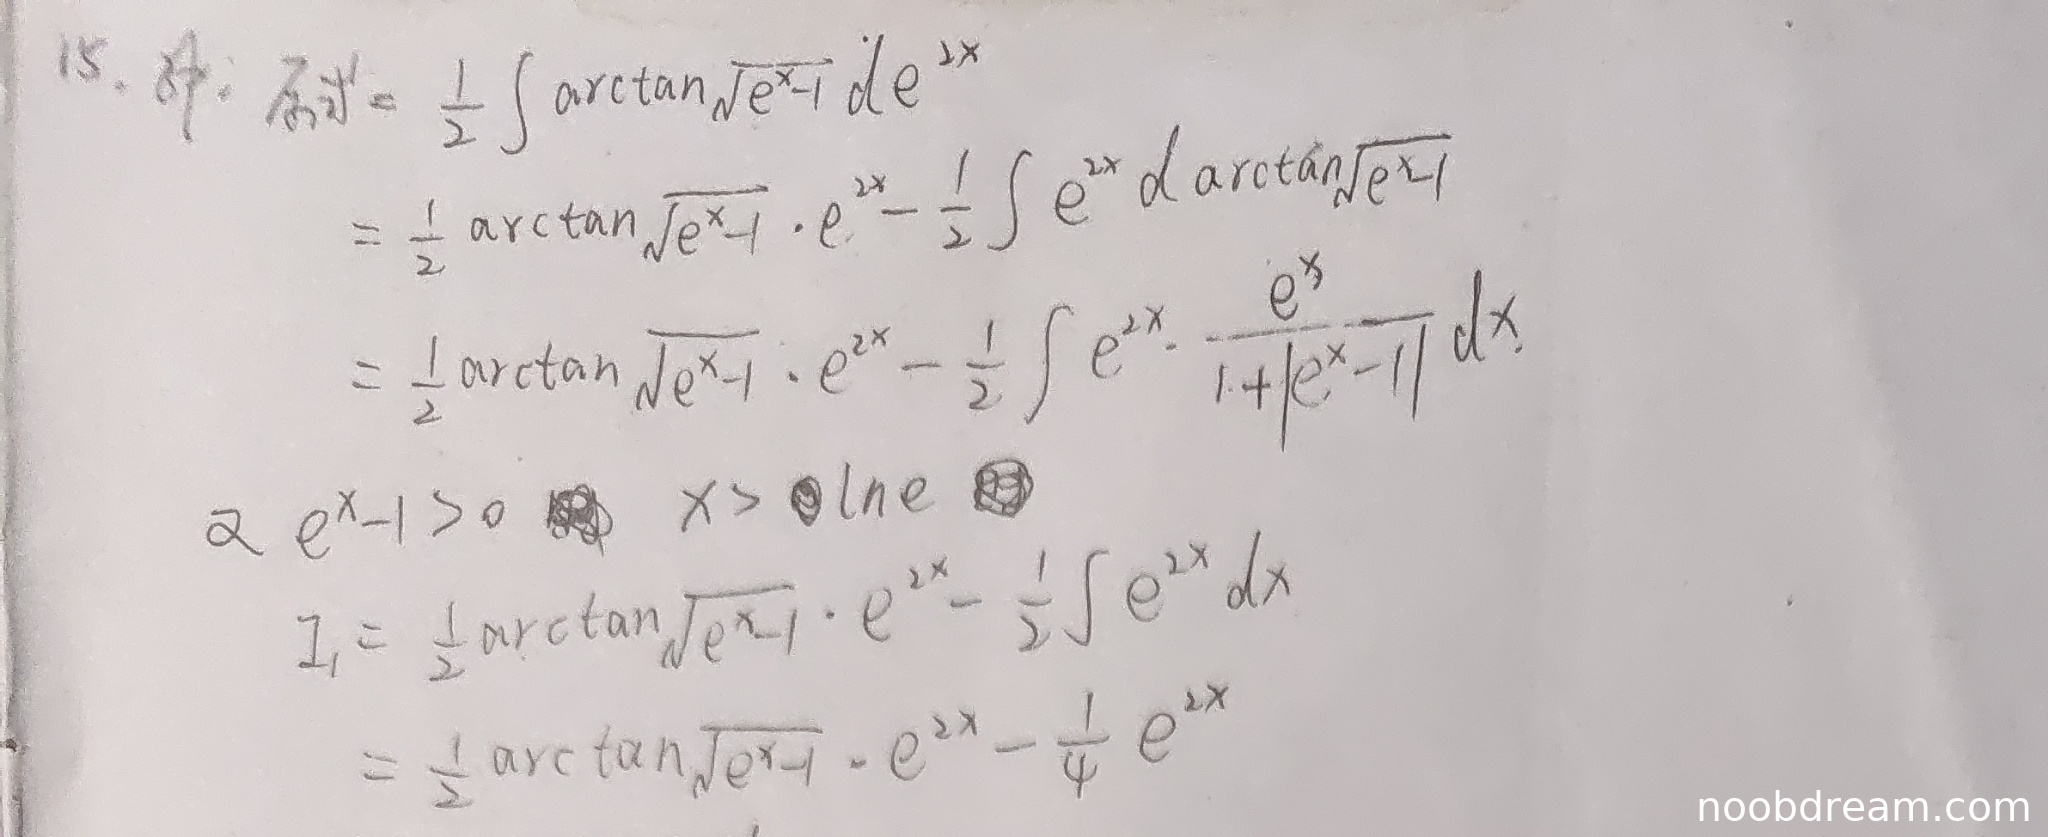 15. 解: 原式 = 1/2 ∫ arctan√(e^x-1) de^{2x}
= 1/2 arctan√(e^x-1) · e^{2x} - 1/2 ∫ e^{2x} d arctan√(e^x-1)
= 1/2 arctan√(e^x-1) · e^{2x} - 1/2 ∫ e^{2x} · e^x/(1+|e^x-1|) dx
e^x-1>0 x> ln e
I₁ = 1/2 arctan√(e^x-1) · e^{2x} - 1/2 ∫ e^{2x} dx
= 1/2 arctan√(e^x-1) · e^{2x} - 1/4 e^{2x}
noobdream.com